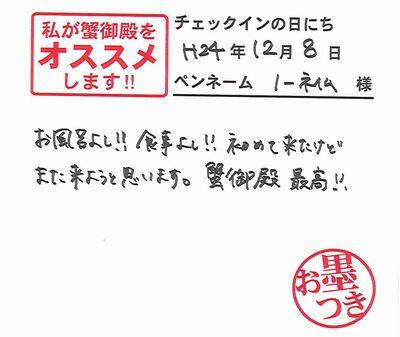 私が蟹御殿を
オススメ
します!!
チェックインの日にち
H24年12月8日
ペンネーム 様
お風呂よし!! 食事よし!! 初めて来たけど
また来ようと思います。蟹御殿 最高!!
お墨つき